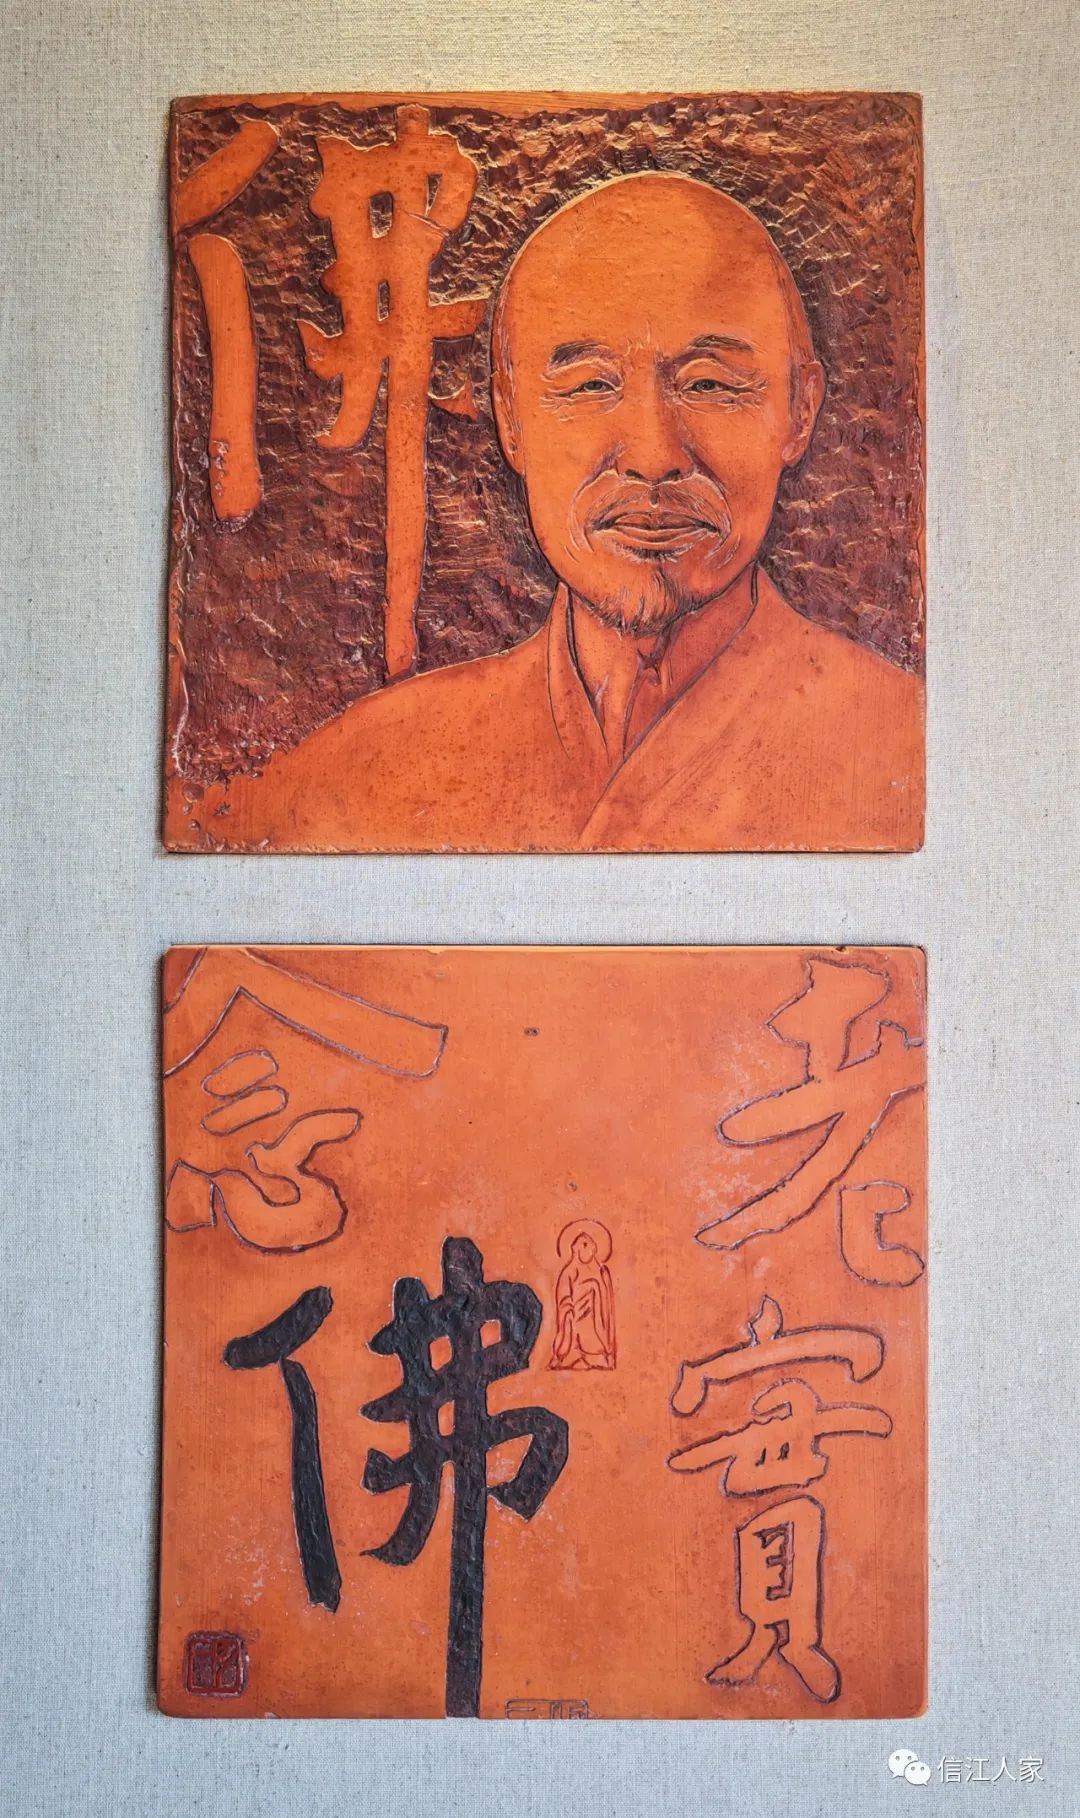 佛
老實
念
佛
信江人家